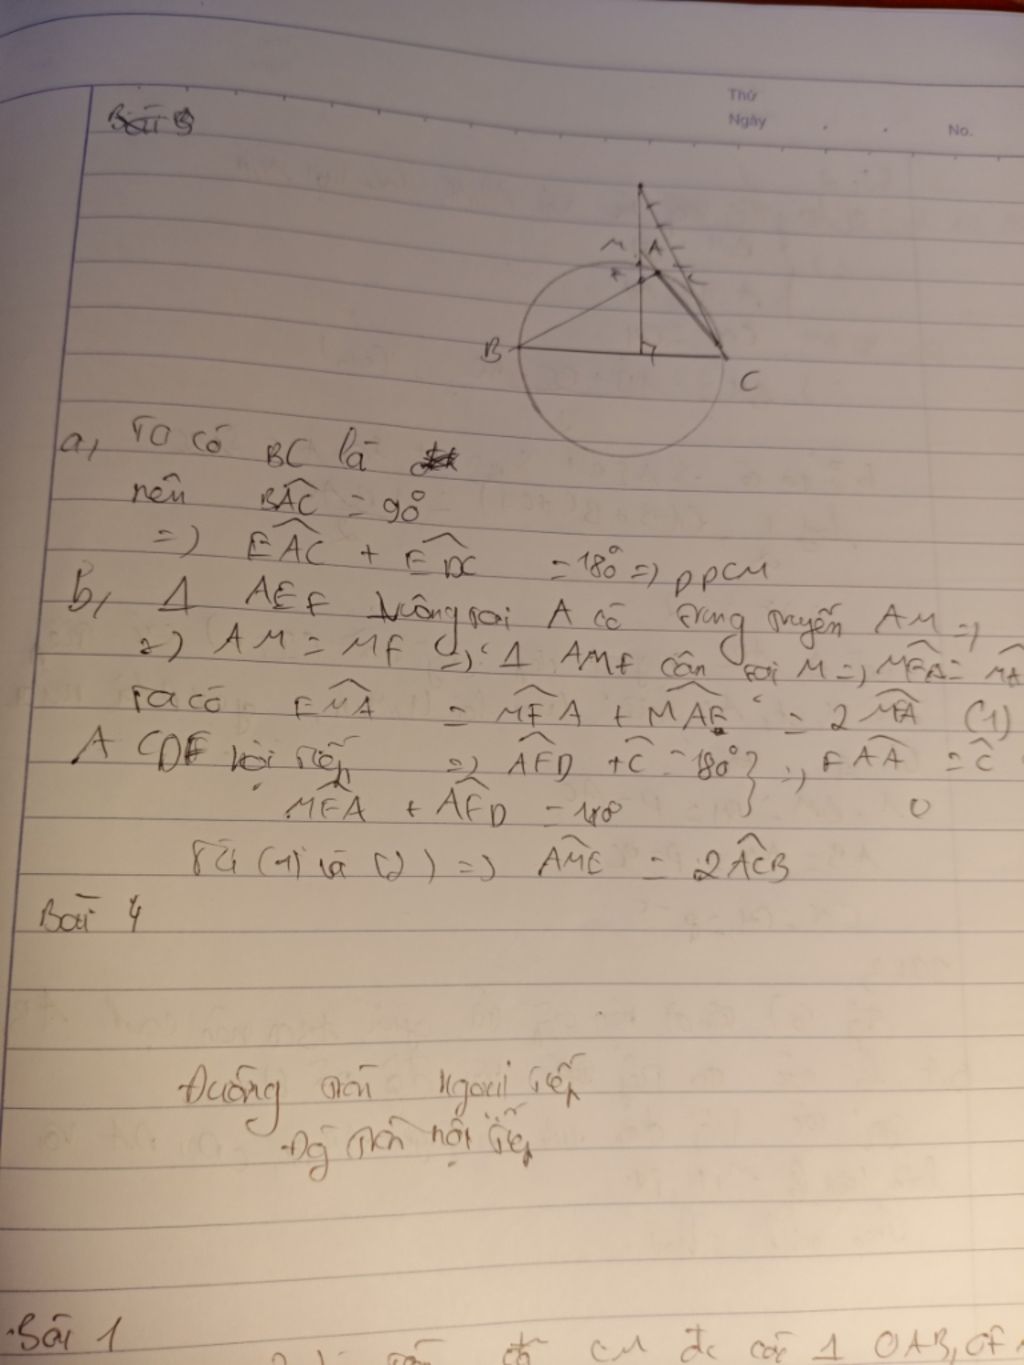 Thứ
Ngày . . No.
Bài 5
M A
B
C
a, Ta có BC là
nên BAC = 90°
=> EAC + EDC = 180° => ĐPCM
b, Δ AEF vuông tại A có trung tuyến AM =>
=> AM = MF => Δ AMF cân tại M => MFA =
Ta có EMA = MFA + MAF = 2 MFA (1)
A CDE nội tiếp => AED + C = 180° } =>
= C
MEA + AED = 180
Từ (1) và (2) => AME = 2ACB
Bài 4
Đường tròn ngoại tiếp
Đg tròn nội tiếp
Bài 1
cm đc các Δ OAB, OF